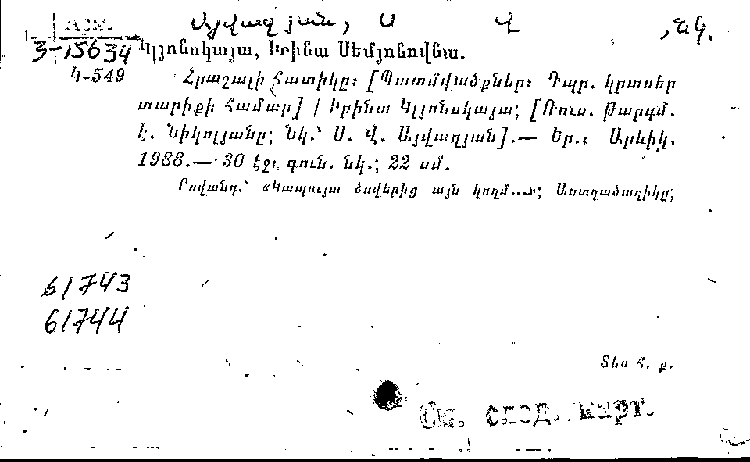 Այվազյան, Ս Վ ,նկ.
3-15634 Կլյոնսկայա, Իրինա Սեմյոնովնա.
Կ-549 Հրաշալի հատիկը: [Պատմվածքներ: Դպր. կրտսեր
տարիքի համար] / Իրինա Կլյոնսկայա; [Ռուս. թարգմ.
Է. Նիկոլյանը; նկ.՝ Ս. Վ. Այվազյան].— Եր.: Արևիկ.
1988.— 30 էջ, գուն. նկ.; 22 սմ.
Բովանդ.՝ «Կապույտ ծովերից այն կողմ...»; Աստղածաղիկը;
61743
61744
Տես հ. ք.
См. след. карт.